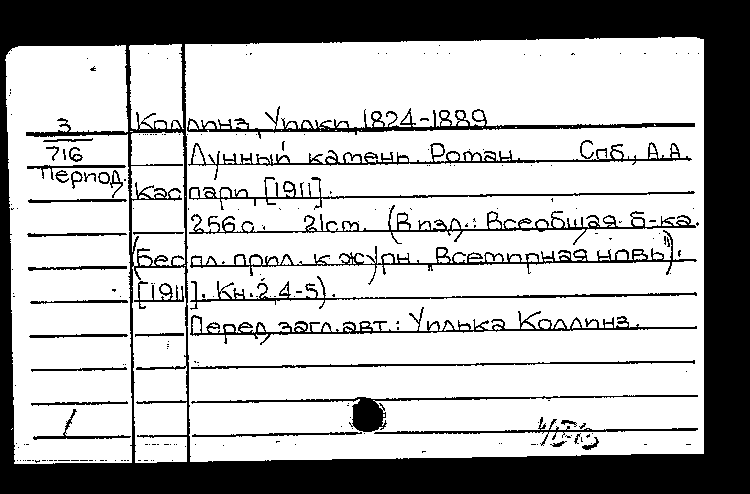 3
716
Период.
Коллинз, Уилки, 1824-1889
Лунный камень. Роман. Спб., А.А.
Каспари, [1911].
256 с. 21 см. (В изд.: Всеобщая б-ка.
(Беспл. прил. к журн. „Всемирная новь").
[1911]. Кн. 2, 4-5).
Перед загл. авт.: Уилька Коллинз.
1